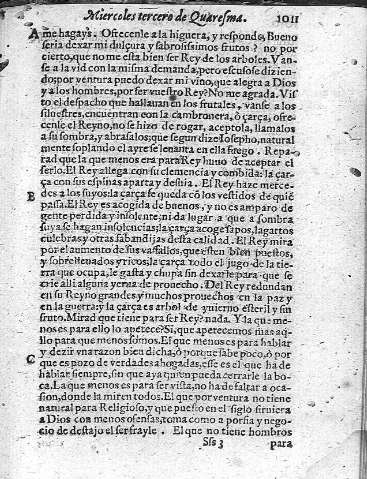 Miercoles tercero de Quaresma. 1011
A me hagays. Ofrecenle a la higuera, y respondo, Bueno
seria dexar mi dulçura y sabrosissimos frutos? no por
cierto, que no me esta bien ser Rey de los arboles. Van-
se a la vid con la misma demanda, pero escusose dizien-
do, por ventura puedo dexar mi vino, que alegra a Dios
y a los hombres, por ser vuestro Rey? No me agrada. Vis-
to el despacho que hallauan en los frutales, vanse a los
siluestres, encuentran con la cambronera, ò çarça, ofre-
cenle el Reyno, no se hizo de rogar, aceptola, llamalos
a su sombra, y abrasalos: que segun dize Iosepho, natural
mente soplando el ayre se leuanta en ella fuego. Repa-
rad que la que menos era para Rey huuo de aceptar el
serlo. El Rey allega con su clemencia y combida: la çar-
ça con sus espinas aparta y desuia. El Rey haze merce-
B des a los suyos: la çarça se queda cõ los vestidos de quiẽ
passa. El Rey es acogida de buenos, y no es amparo de
gente perdida y insolente, ni da lugar a que a sombra
suya se hagan insolencias; la çarça acoge sapos, lagartos
culebras y otras sabandijas desta calidad. El Rey mira
por el aumento de sus vassallos, que esten bien puestos,
y sobrelleuados y ricos; la çarça todo el jugo de la tie-
rra que ocupa, le gasta y chupa sin dexarle para que se
crie alli alguna yerua de prouecho. Del Rey redundan
en su Reyno grandes y muchos prouechos en la paz y
en la guerra: y la çarça es arbol de ynierno esteril y sin
fruto. Mirad que tiene para ser Rey? nada. Y la que me-
nos es para ello lo apetece? Si, que apetecemos mas aq-
llo para que menos somos. El que menos es para hablar
y dezir vna razon bien dicha, ò porque sabe poco, ò por
C que es pozo de verdades ahogadas, esse es el que ha de
hablar siempre, sin que aya quien pueda cerrarle la bo-
ca. La que menos es para ser vista, no ha de faltar a oca-
sion, donde la miren todos. El que por ventura no tiene
natural para Religioso, y que puesto en el siglo siruiera
a Dios con menos ofensas, toma como a porfia y nego-
cio de destajo el ser frayle. El que no tiene hombros
Sss 3 para